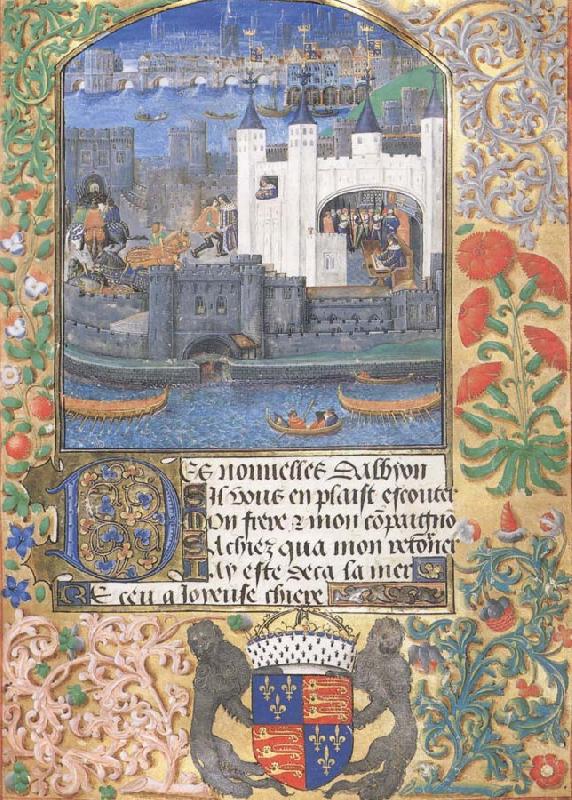 Des nouuelles dalbyon
Sil vous en plaist escouter
Mon frere & mon cōpaignō
Sachiez qua mon retōner
Jay este deca la mer
Receu a Joyeuse chiere